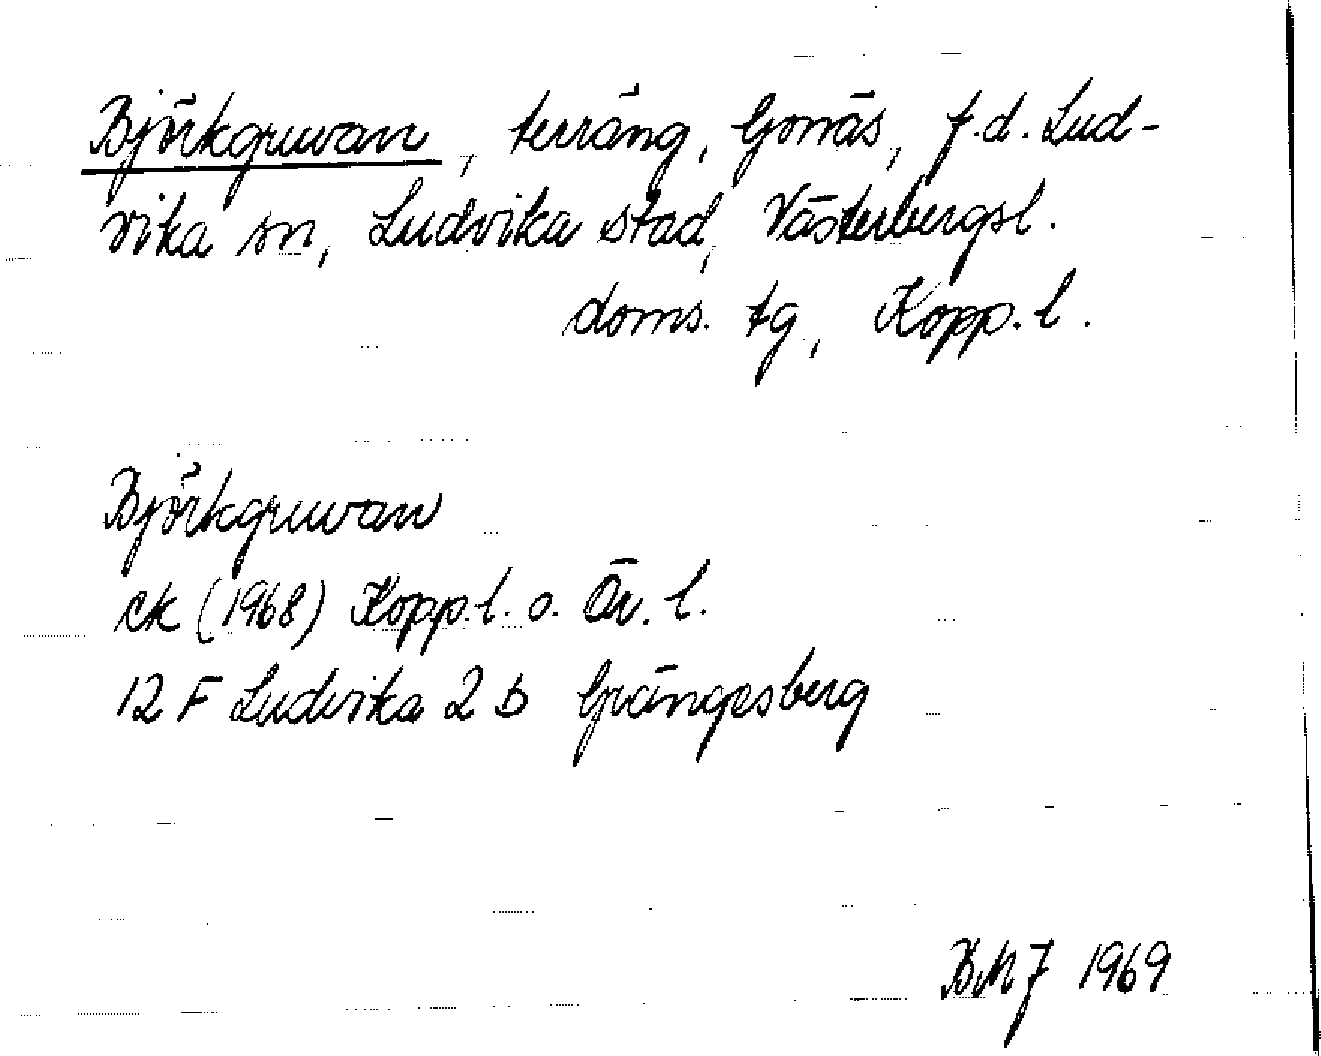 Björkgruvan, terräng, Gonäs, f.d. Lud-
vika sn, Ludvika stad, Västerbergsl.
doms. tg, Kopp. l.
Björkgruvan
ek (1968) Kopp. l. o. Ör. l.
12 F Ludvika 2 b Grängesberg
BMJ 1969